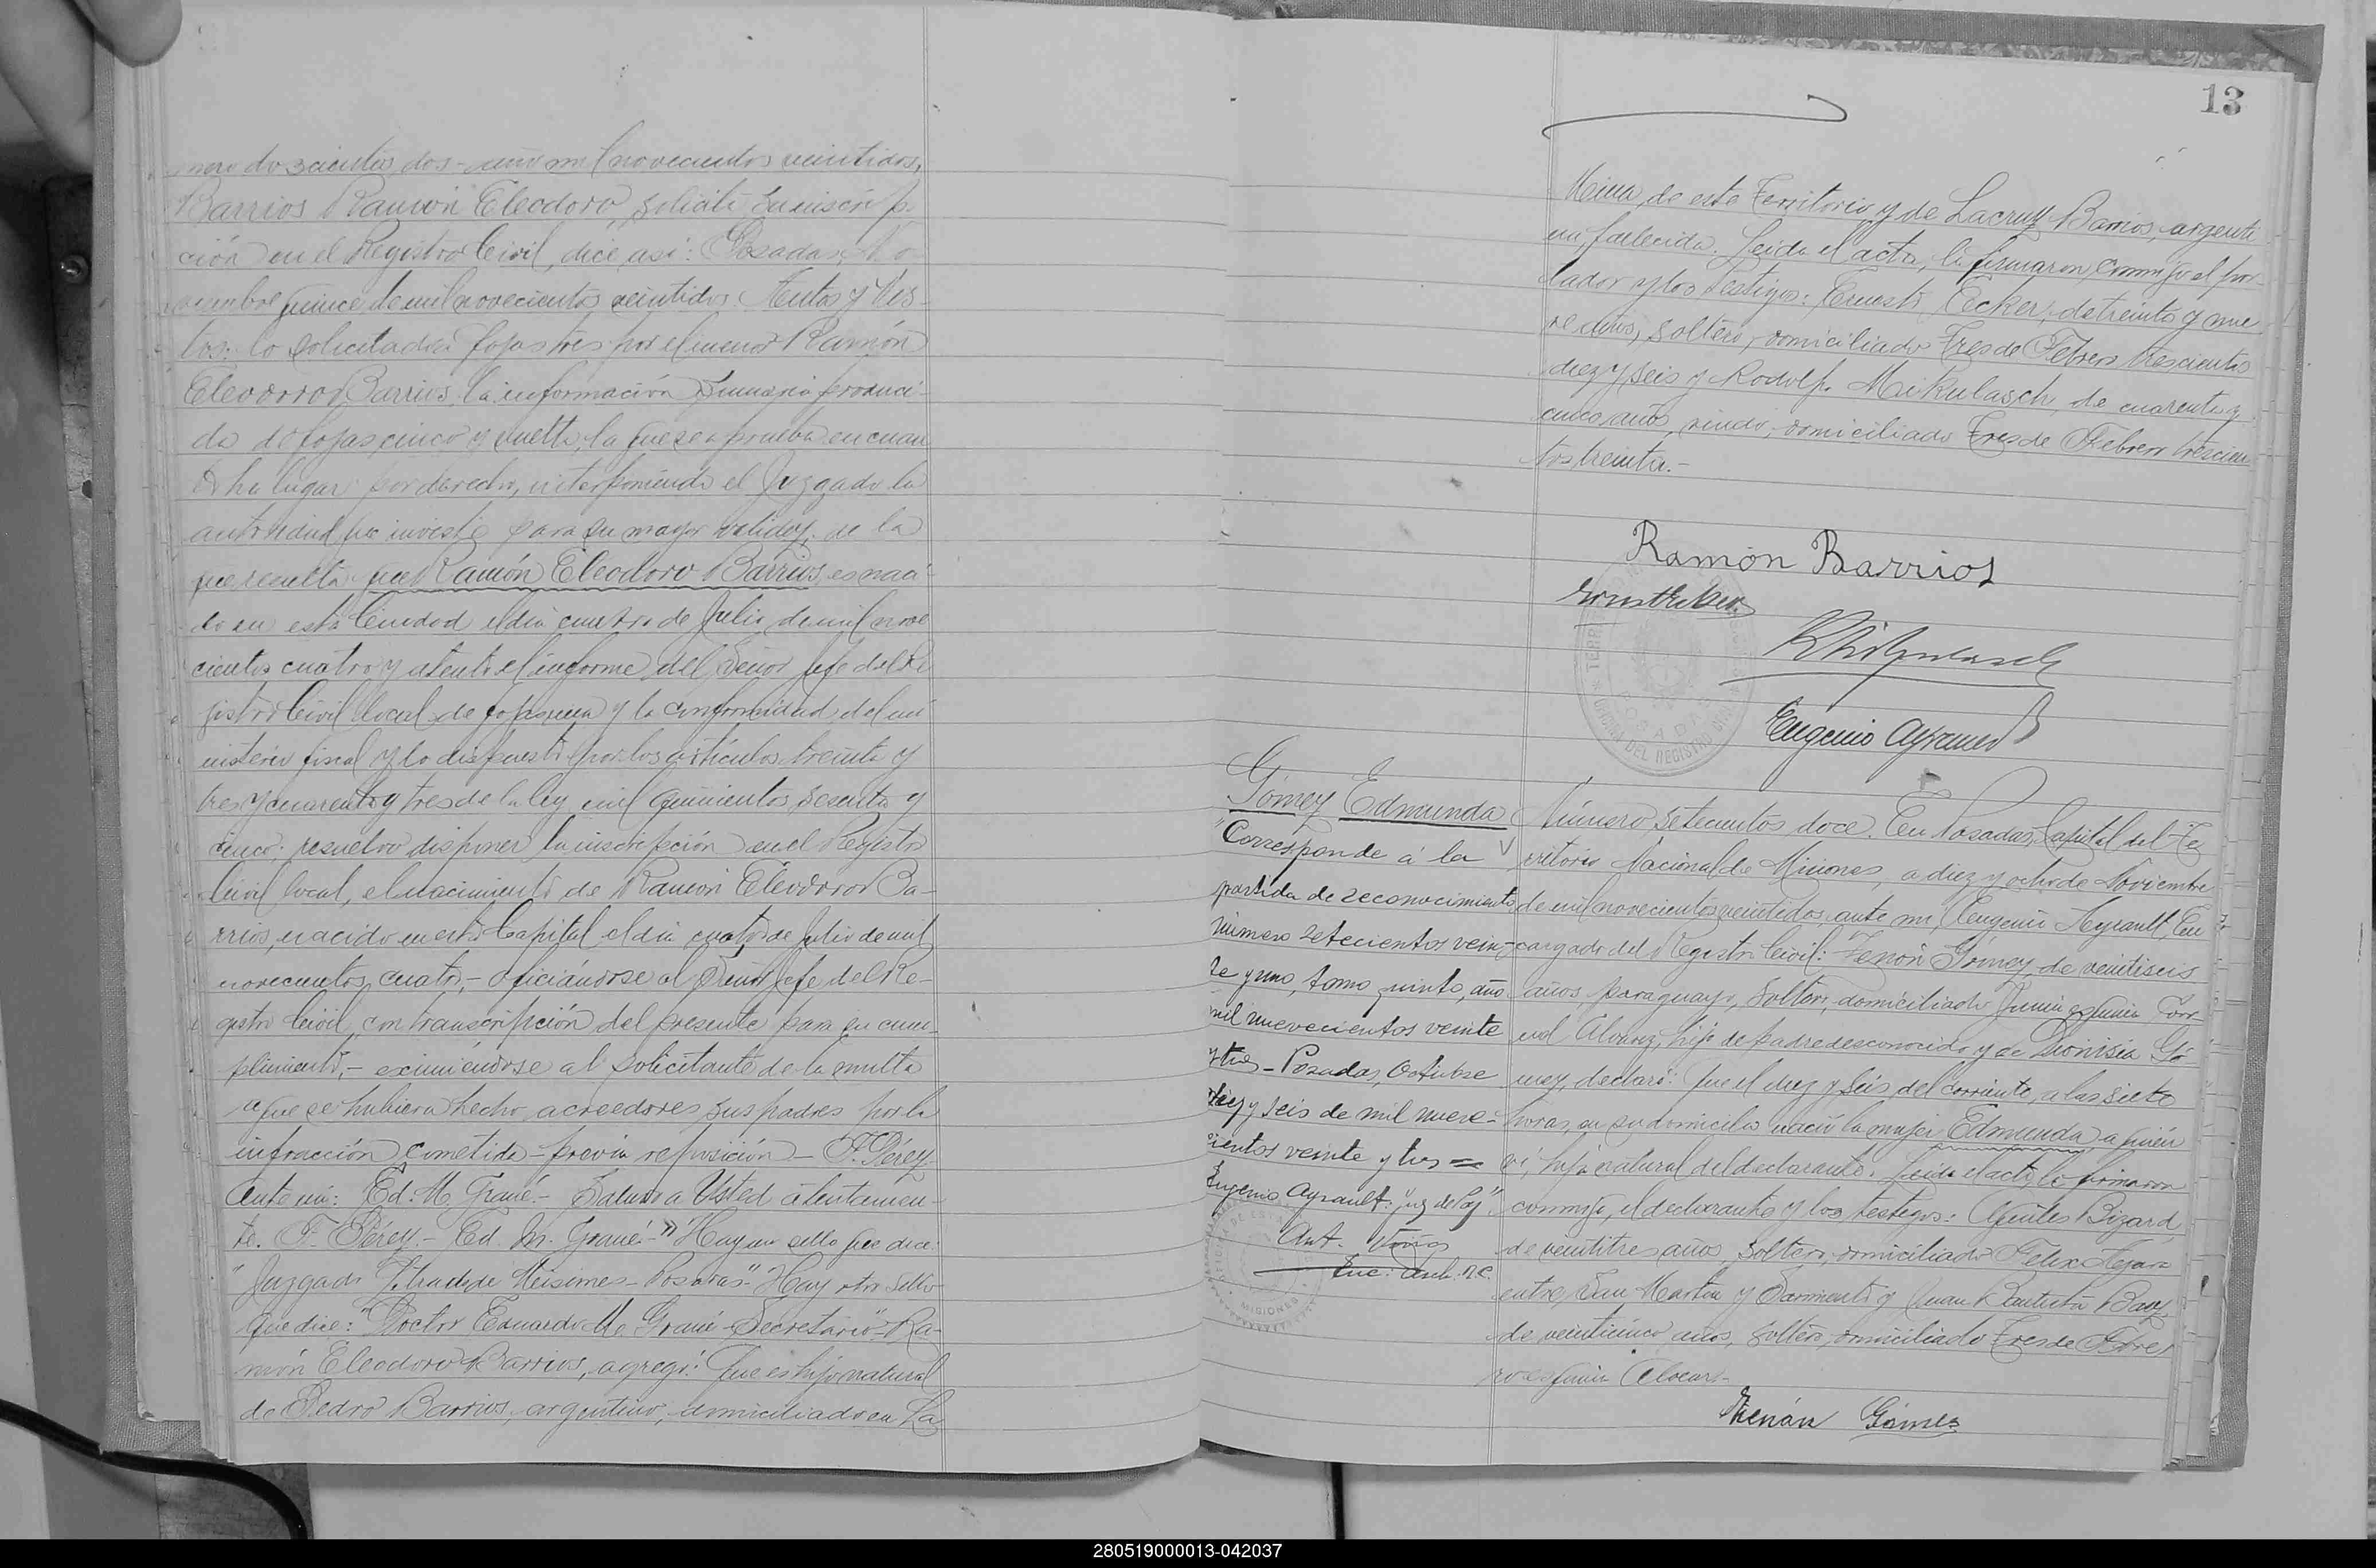 mero doscientos dos - año mil novecientos veintidos,
Barrios Ramón Eleodoro, solicita su inscrip-
ción en el Registro Civil, dice así: Posadas, No-
viembre quince de mil novecientos veintidos. Autos y Vis-
tos: lo solicitado a fojas tres por el menor Ramón
Eleodoro Barrios, la información sumaria produci-
da de fojas cinco y vuelta, la que se aprueba en cuan
to ha lugar por derecho, interponiendo el Juzgado la
autoridad que inviste para su mayor validez, de la
que resulta que Ramón Eleodoro Barrios, es naci-
do en esta Ciudad el día cuatro de Julio de mil nove
cientos cuatro y atento el informe del Señor Jefe del Re
gistro Civil local de fojas una y la conformidad del mi
nisterio fiscal y lo dispuesto por los artículos treinta y
tres y cuarenta y tres de la ley mil quinientos sesenta y
cinco; resuelvo disponer la inscripción en el Registro
Civil local, el nacimiento de Ramón Eleodoro Ba-
rrios, nacido en esta Capital el día cuatro de Julio de mil
novecientos cuatro,- oficiándose al Señor Jefe del Re-
gistro Civil, con transcripción del presente para su cum-
plimiento,- eximiéndose al solicitante de la multa
a que se hubiera hecho acreedores sus padres por la
infracción cometida - previa reposición - F. Pérez.
Ante mi: Ed. M. Grané.- Saluda a Usted atentamen-
te. F. Pérez.- Ed. M. Grané-" Hay un sello que dice:
"Juzgado Letrado de Misiones - Posadas". Hay otro sello
que dice: "Doctor Eduardo M. Grané - Secretario". Ra-
món Eleodoro Barrios, agregó: Que es hijo natural
de Pedro Barrios, argentino, domiciliado en La
13
Mina, de este Territorio y de Lacruz Barrios, argenti
na, fallecida. Leida el acta, la firmaron conmigo el por-
tador y los testigos: Ernesto Ecker, de treinta y nue
ve años, soltero, domiciliado Tres de Febrero trescientos
diez y seis y Rodolfo Mikulasch, de cuarenta y
cinco años, viudo, domiciliado Tres de Febrero trescien
tos treinta.-
Ramón Barrios
Eugenio Ayrault
OFICINA DEL REGISTRO CIVIL
POSADAS
Gómez Edmunda
"Corresponde á la
partida de reconocimiento
número setecientos vein-
te y uno, tomo quinto, año
mil nuevecientos veinte
y tres - Posadas, Octubre
diez y seis de mil nueve-
cientos veinte y tres =
Eugenio Ayrault: "Juez de Paz"
Ant.
Enc: Arch: R.C.
MISIONES
Número setecientos doce. En Posadas, Capital del Te
rritorio Nacional de Misiones, a diez y ocho de Noviembre
de mil novecientos veintidos, ante mi, Eugenio Ayrault, En
cargado del Registro Civil: Zenón Gómez, de veintiseis
años, paraguayo, soltero, domiciliado Junin esquina Coro
nel Alvarez, hijo de padre desconocido y de Dionisia Gó
mez, declaró: Que el diez y seis del corriente, a las siete
horas, en su domicilio nació la mujer Edmunda, a quién
ví, hija natural del declarante. Leida el acta, la firmaron
conmigo, el declarante y los testigos: Bizard,
de veintitres años, soltero, domiciliado Felix
entre San Martin y Sarmiento y Juan Bautista Baez,
de veinticinco años, soltero, domiciliado Tres de Febre
ro esquina
Zenón Gómez
280519000013-042037